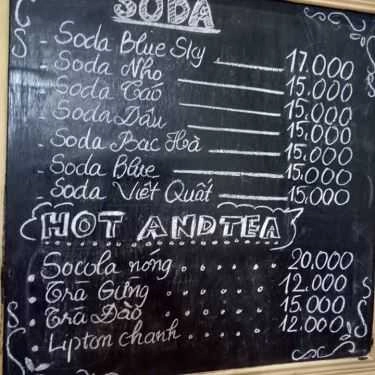 SODA
- Soda Blue Sky 17.000
- Soda Nho 15.000
- Soda Táo 15.000
- Soda Dâu 15.000
- Soda Bạc Hà 15.000
- Soda Blue 15.000
- Soda Việt Quất 15.000
HOT AND TEA
• Socola nóng 20,000
• Trà Gừng 12.000
• Trà Đào 15.000
• Lipton chanh 12.000